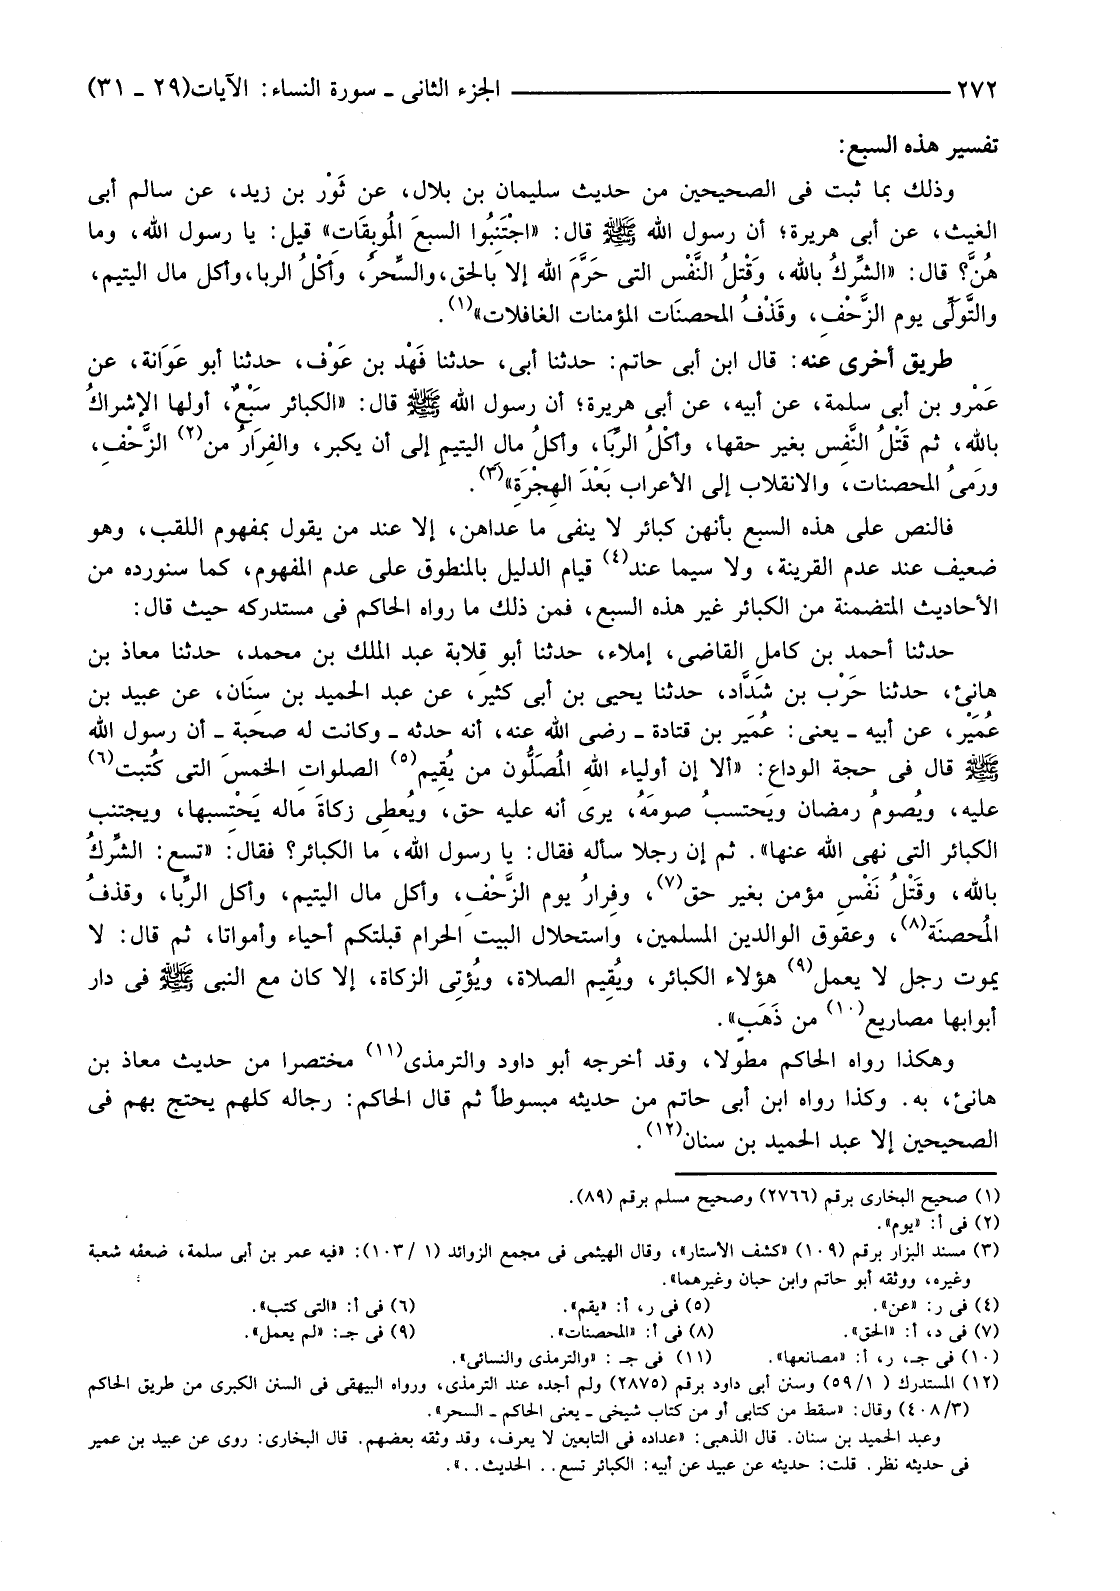 ٢٧٢ ــــــــــــــــــــ الجزء الثانى ـ سورة النساء: الآيات(٢٩ ـ ٣١)
تفسير هذه السبع:
وذلك بما ثبت فى الصحيحين من حديث سليمان بن بلال، عن ثَوْر بن زيد، عن سالم أبى
الغيث، عن أبى هريرة؛ أن رسول الله ﷺ قال: «اجْتَنِبُوا السبعَ المُوبِقَات» قيل: يا رسول الله، وما
هُنَّ؟ قال: «الشِّركُ بالله، وَقَتْلُ النَّفْس التى حَرَّمَ الله إلا بالحق،والسِّحرُ، وأكْلُ الربا،وأكل مال اليتيم،
والتَّوَلِّى يوم الزَّحْفِ، وقَذْفُ المحصنَات المؤمنات الغافلات»(١).
طريق أخرى عنه: قال ابن أبى حاتم: حدثنا أبى، حدثنا فَهْد بن عَوْف، حدثنا أبو عَوَانة، عن
عَمْرو بن أبى سلمة، عن أبيه، عن أبى هريرة؛ أن رسول الله ﷺ قال: «الكبائر سَبْعٌ، أولها الإشراكُ
بالله، ثم قَتْلُ النَّفْس بغير حقها، وأكْلُ الرِّبَا، وأكلُ مال اليتيمِ إلى أن يكبر، والفِرَارُ من(٢) الزَّحْفِ،
ورَمىُ المحصنات، والانقلاب إلى الأعراب بَعْدَ الهِجْرَةِ»(٣).
فالنص على هذه السبع بأنهن كبائر لا ينفى ما عداهن، إلا عند من يقول بمفهوم اللقب، وهو
ضعيف عند عدم القرينة، ولا سيما عند(٤) قيام الدليل بالمنطوق على عدم المفهوم، كما سنورده من
الأحاديث المتضمنة من الكبائر غير هذه السبع، فمن ذلك ما رواه الحاكم فى مستدركه حيث قال:
حدثنا أحمد بن كامل القاضى، إملاء، حدثنا أبو قِلابة عبد الملك بن محمد، حدثنا معاذ بن
هانئ، حدثنا حَرْب بن شَدَّاد، حدثنا يحيى بن أبى كثير، عن عبد الحميد بن سِنَان، عن عبيد بن
عُمَيْر، عن أبيه ـ يعنى: عُمَير بن قتادة ـ رضى الله عنه، أنه حدثه ـ وكانت له صحبة ـ أن رسول الله
ﷺ قال فى حجة الوداع: «ألا إن أولياء اللهِ المُصَلُّون من يُقِيم(٥) الصلوات الخمسَ التى كُتبت(٦)
عليه، ويُصومُ رمضان ويَحتسبُ صومَهُ، يرى أنه عليه حق، ويُعطِى زكاةَ ماله يَحْتِسبها، ويجتنب
الكبائر التى نهى الله عنها». ثم إن رجلا سأله فقال: يا رسول الله، ما الكبائر؟ فقال: «تسع: الشِّركُ
بالله، وقَتْلُ نَفْسِ مؤمن بغير حق(٧)، وفِرارُ يوم الزَّحْفِ، وأكل مال اليتيم، وأكل الرِّبا، وقذفُ
المُحصنَة(٨)، وعقوق الوالدين المسلمين، واستحلال البيت الحرام قبلتكم أحياء وأمواتا، ثم قال: لا
يموت رجل لا يعمل(٩) هؤلاء الكبائر، ويُقِيم الصلاة، ويُؤتِى الزكاة، إلا كان مع النبى ﷺ فى دار
أبوابها مصاريع(١٠) من ذَهَبٍ».
وهكذا رواه الحاكم مطولا، وقد أخرجه أبو داود والترمذى(١١) مختصرا من حديث معاذ بن
هانئ، به. وكذا رواه ابن أبى حاتم من حديثه مبسوطاً ثم قال الحاكم: رجاله كلهم يحتج بهم فى
الصحيحين إلا عبد الحميد بن سنان(١٢).
(١) صحيح البخارى برقم (٢٧٦٦) وصحيح مسلم برقم (٨٩).
(٢) فى أ: «يوم».
(٣) مسند البزار برقم (١٠٩) «كشف الأستار»، وقال الهيثمى فى مجمع الزوائد (١ /١٠٣): «فيه عمر بن أبى سلمة، ضعفه شعبة
وغيره، ووثقه أبو حاتم وابن حبان وغيرهما».
(٤) فى ر: «عن». (٥) فى ر، أ: «يقم». (٦) فى أ: «التى كتب».
(٧) فى د، أ: «الحق». (٨) فى أ: «المحصنات». (٩) فى جـ: «لم يعمل».
(١٠) فى جـ، ر، أ: «مصانعها». (١١) فى جـ : «والترمذى والنسائى».
(١٢) المستدرك ( ٥٩/١) وسنن أبى داود برقم (٢٨٧٥) ولم أجده عند الترمذى، ورواه البيهقى فى السنن الكبرى من طريق الحاكم
(٤٠٨/٣) وقال: «سقط من كتابى أو من كتاب شيخى ـ يعنى الحاكم ـ السحر».
وعبد الحميد بن سنان. قال الذهبى: «عداده فى التابعين لا يعرف، وقد وثقه بعضهم. قال البخارى: روى عن عبيد بن عمير
فى حديثه نظر. قلت: حديثه عن عبيد عن أبيه: الكبائر تسع.. الحديث..».